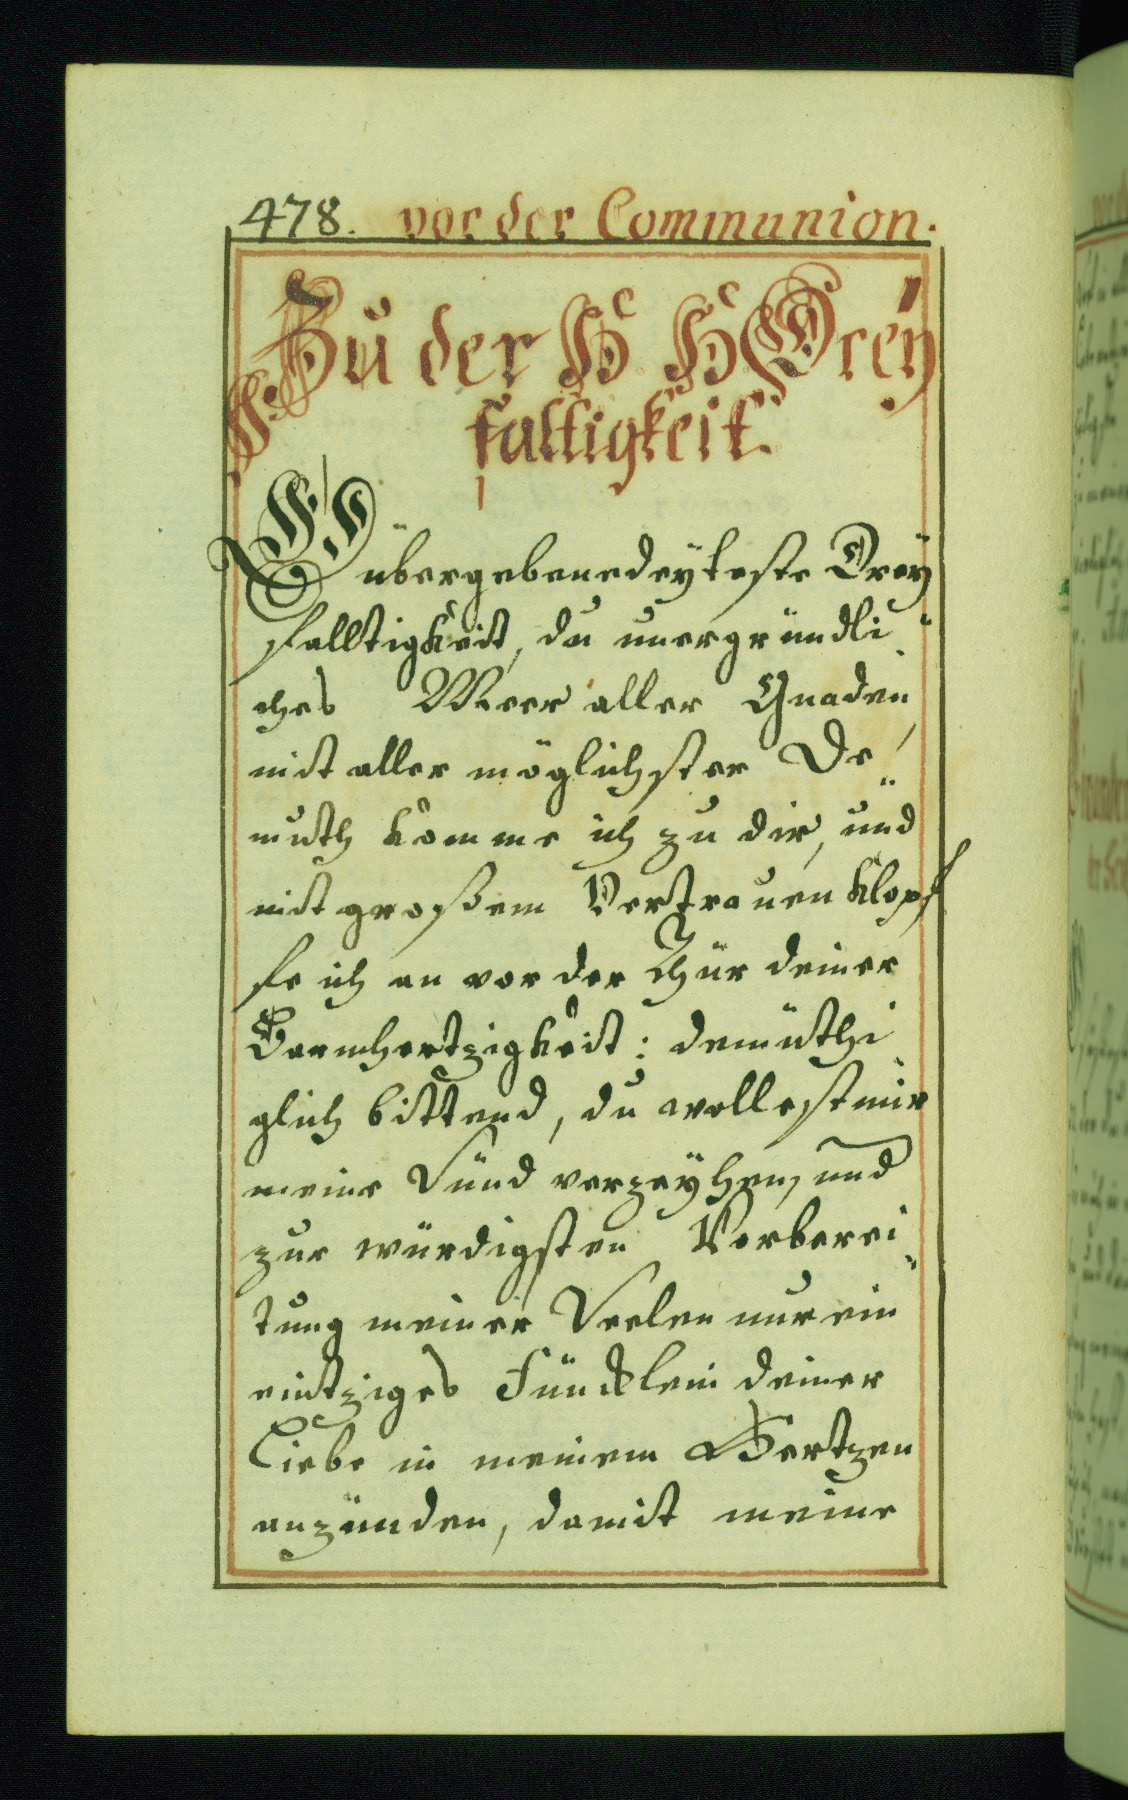 478. vor der Communion.
Zu der H H Drey
faltigkeit.
O übergebenedeyteste Drey
falltigkeit, du unergründli
ches Meer aller Gnaden,
mit aller möglichster De„
muth komme ich zu dir, und
mit großem Vertrauen klopf
fe ich an vor der Thür deiner
Barmhertzigkeit: demüthi
glich bittend, du wollest mir
meine Sünd verzeyhen, und
zur würdigsten Vorberei„
tung meiner Seelen nur ein
eintziges Füncklein deiner
Liebe in meinem Hertzen
anzünden, damit meine